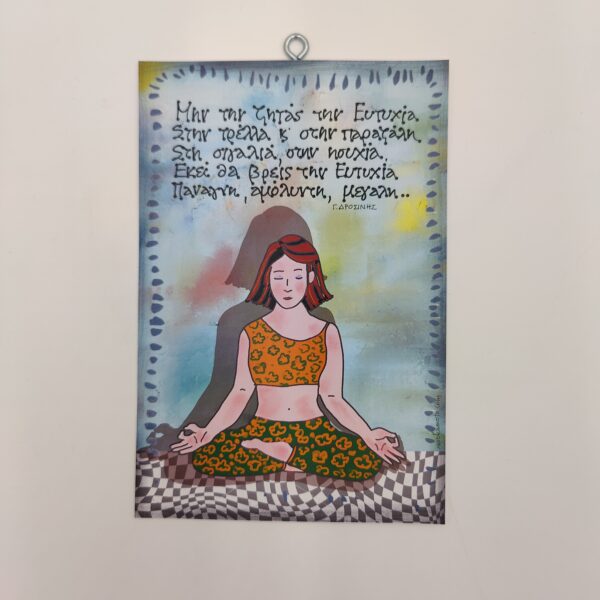 Μην την ζητάς την Ευτυχία
Στην τρέλλα κ' στην παραζάλη.
Στη σιγαλιά, στην ησυχία.
Εκεί θα βρεις την Ευτυχία
Πάναγνη, αμόλυντη, μεγάλη..
Γ. ΔΡΟΣΙΝΗΣ